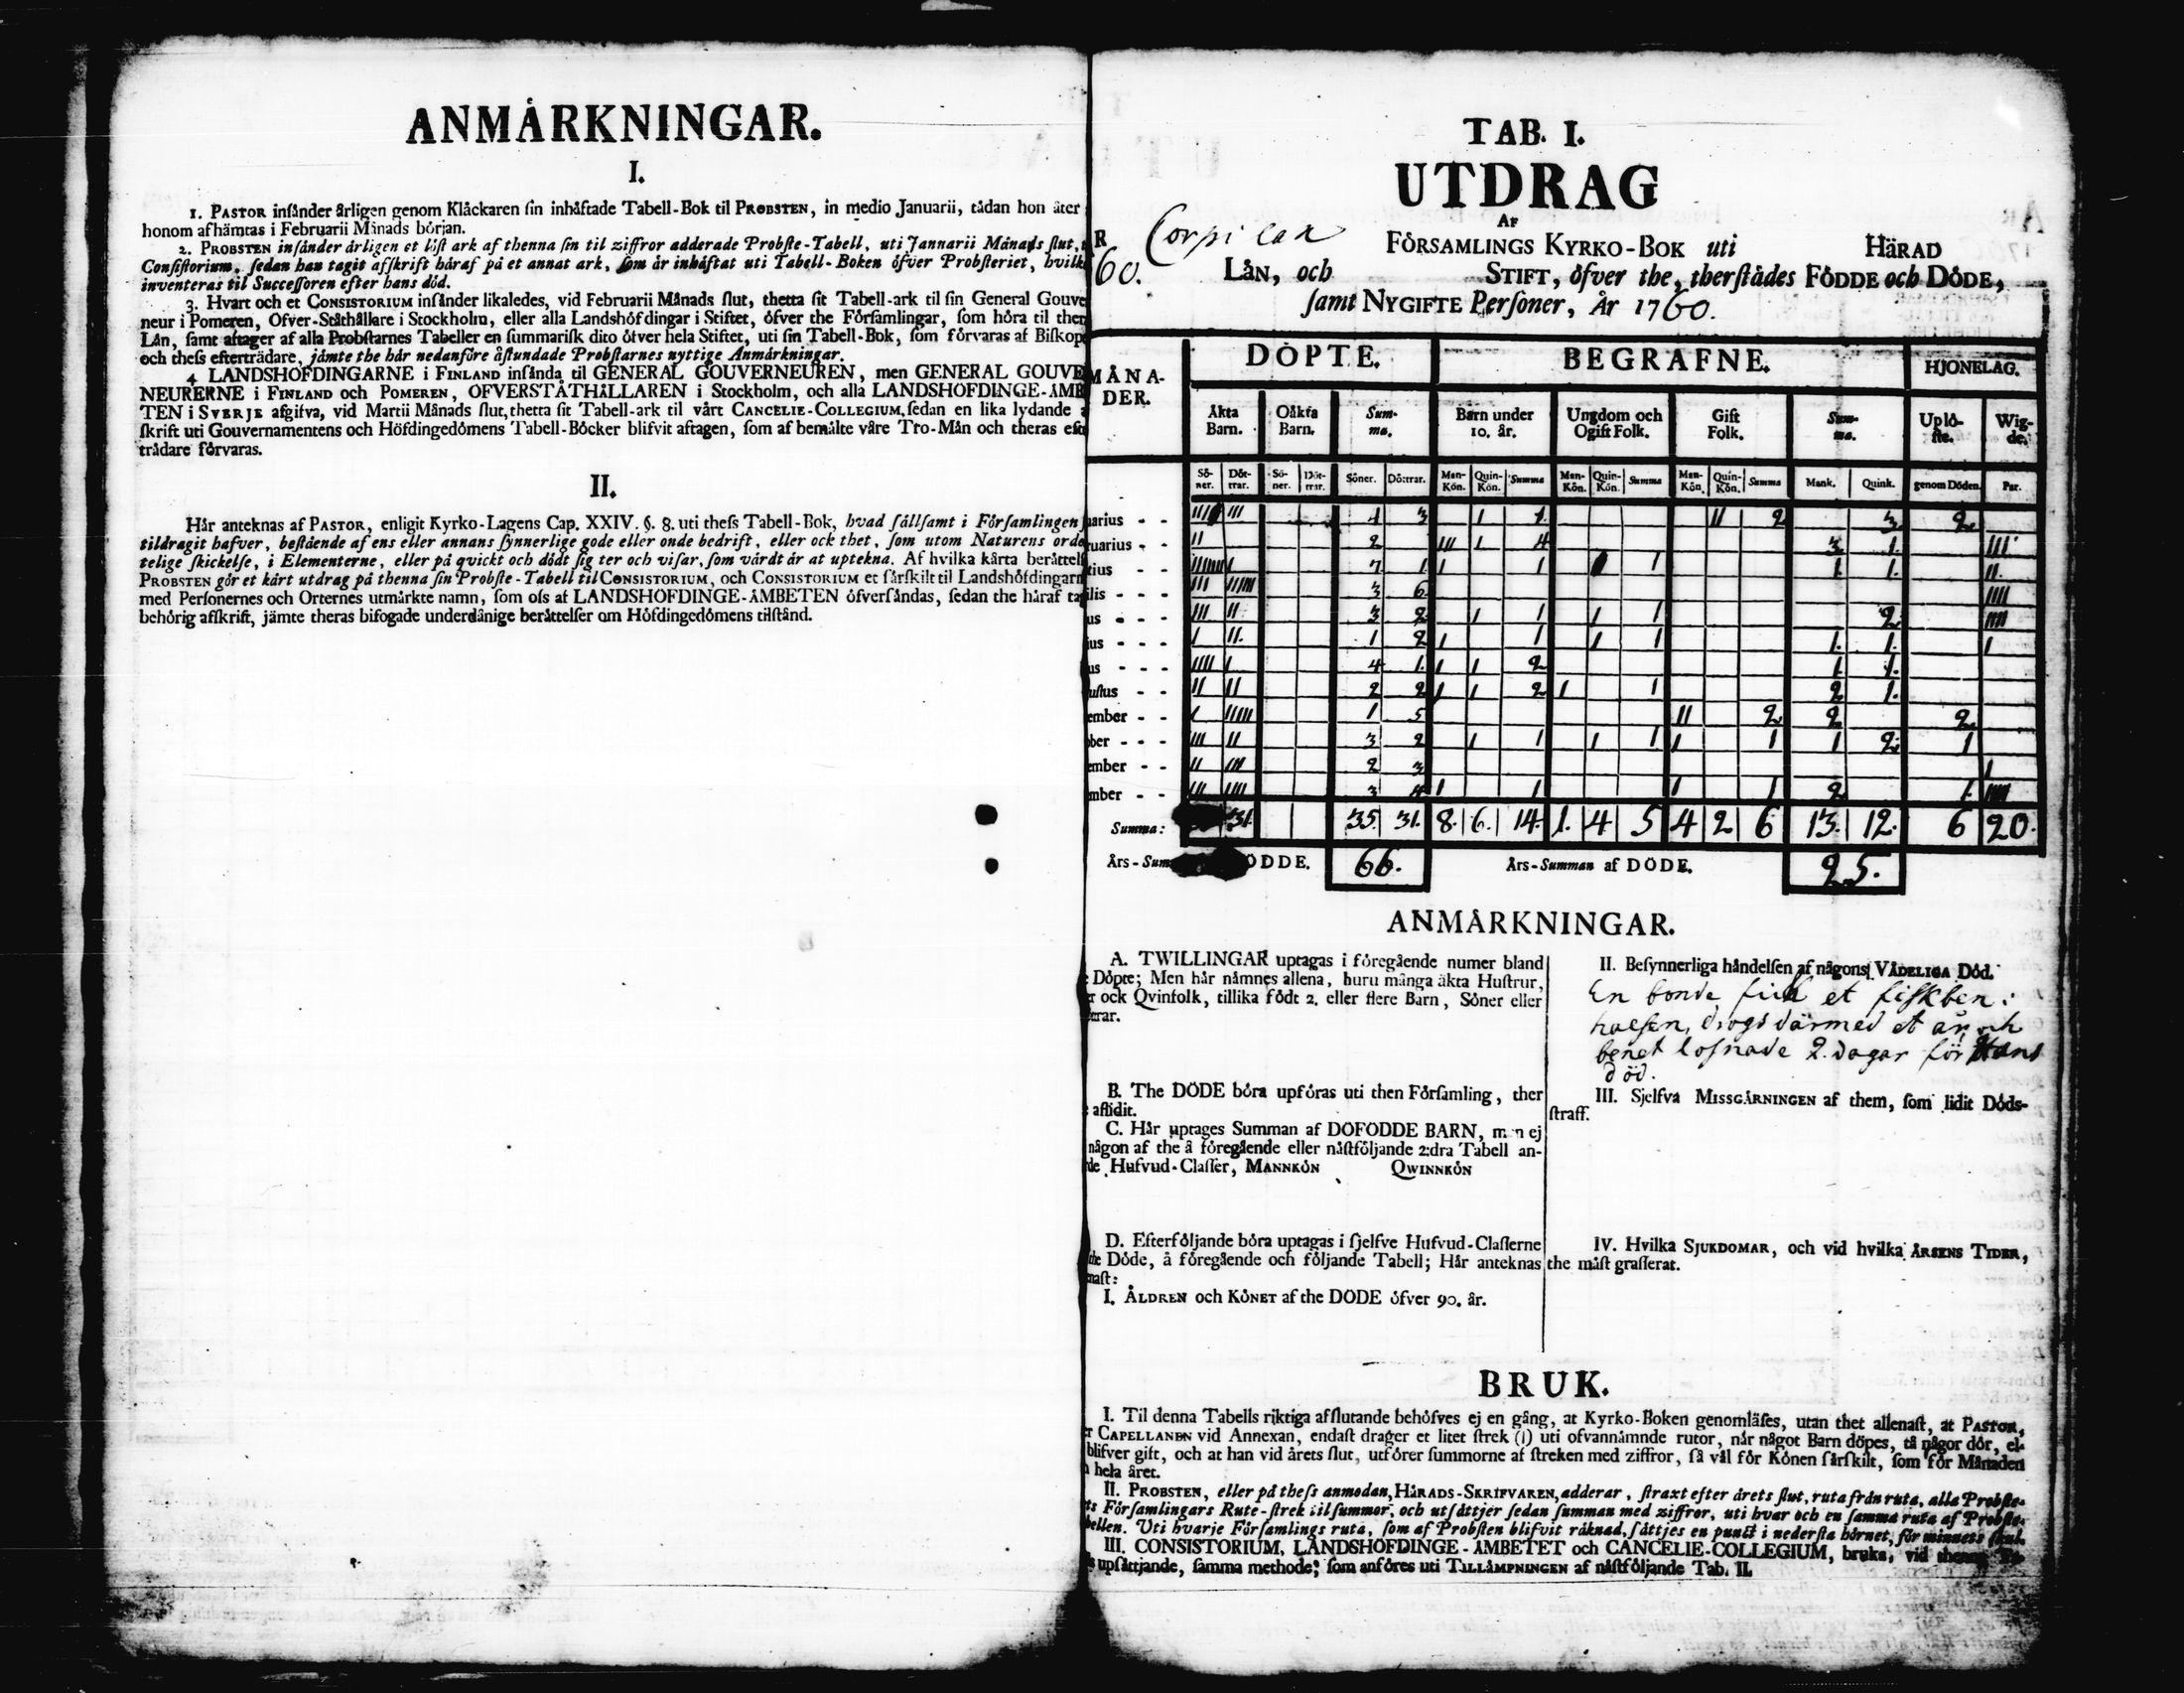 ANMÅRKNINGAR.
I.
1. PASTOR insånder årligen genom Klåckaren sin inhåftade Tabell-Bok til PROBSTEN, in medio Januarii, tådan hon åter
honom afhämtas i Februarii Månads början.
2. PROBSTEN insånder årligen et löst ark af thenna sin til ziffror adderade Probste-Tabell, uti Jannarii Månads slut,
Consistorium, sedan han tagit afskrift håraf på et annat ark, som år inbåftat uti Tabell-Boken öfver Probsteriet, hvilk
inventeras til Successoren efter hans död.
3. Hvart och et CONSISTORIUM insånder likaledes, vid Februarii Månads slut, thetta sit Tabell-ark til sin General Gouve
neur i Pomeren, Ofver-Ståthållare i Stockholm, eller alla Landshöfdingar i Stiftet, öfver the Församlingar, som höra til ther
Lån, samt aftager af alla Probstarnes Tabeller en summarisk dito öfver hela Stiftet, uti sin Tabell-Bok, som förvaras af Biskop
och thess efterträdare, jämte the hår nedanföre åstundade Probstarnes nyttige Anmårkningar.
4 LANDSHOFDINGARNE i FINLAND insånda til GENERAL GOUVERNEUREN, men GENERAL GOUVE
NEURERNE i FINLAND och POMEREN, OFVERSTÅTHÅLLAREN i Stockholm, och alla LANDSHOFDINGE-ÅMB
TEN i SVERJE afgifva, vid Martii Månads slut, thetta sit Tabell-ark til vårt CANCELIE-COLLEGIUM, sedan en lika lydande a
skrift uti Gouvernamentens och Höfdingedömens Tabell-Böcker blifvit aftagen, som af bemälte våre Tro-Mån och theras eft
trädare förvaras.
II.
Hår anteknas af PASTOR, enligit Kyrko-Lagens Cap. XXIV. §. 8. uti thess Tabell-Bok, hvad sållsamt i Församlingen
tildragit hafver, bestående af ens eller annans synnerlige gode eller onde bedrift, eller ock thet, som utom Naturens orde
telige skickelse, i Elementerne, eller på qvickt och dödt sig ter och visar, som vårdt år at uptekna. Af hvilka kårta beråttels
PROBSTEN gör et kårt utdrag på thenna sin Probste-Tabell til CONSISTORIUM, och CONSISTORIUM et sårskilt til Landshöfdingarn
med Personernes och Orternes utmårkte namn, som oss af LANDSHOFDINGE-ÅMBETEN öfversåndas, sedan the håraf tag
behörig afskrift, jämte theras bifogade underdånige beråttelser om Höfdingedömens tilstånd.
TAB. I.
UTDRAG
AF
R Corpilax FÖRSAMLINGS KYRKO-BOK uti HÄRAD
60. LÅN, och STIFT, öfver the, therstådes FÖDDE och DÖDE,
samt NYGIFTE Personer, År 1760.
MÅNA- DÖPTE. BEGRAFNE. HJONELAG.
DER.
Åkta Oåkta Sum- Barn under Ungdom och Gift Sum- Uplö- Wig-
Barn. Barn. ma. 10. år. Ogift Folk. Folk. ma. ste. de.
Sö- Döt- Sö- Döt- Söner. Döttrar. Man- Quin- Summa Man- Quin- Summa Man- Quin- Summa Mank. Quink. genom Döden. Par.
ner. trar. ner. trar. Kön. Kön. Kön. Kön. Kön. Kön.
uarius - - IIII III 4 3 I 1 II 2 3 2
ruarius - - II 2 III I 4 3 1 III
tius - - IIIIIII I 7 1 I 1 1 1 1 II
ilis - - - III IIIIII 3 6 IIII
us - - - III II 3 2 I 1 I 1 2 IIII
ius - - - I II 1 2 I 1 I 1 1 1 I
us - - - IIII I 4 1 I I 2 1 1
ustus - - II II 2 2 I I 2 I 1 2 1
ember - - I IIIII 1 5 II 2 2 2
ber - - - III II 3 2 I 1 I 1 I 1 1 2 1
ember - - II III 2 3 I
mber - - III IIII 3 4 I 1 I 1 2 1 IIII
Summa: 31. 35. 31. 8. 6. 14. 1. 4 5 4 2 6 13. 12. 6 20.
Års-Sum ÖDDE. 66. Års-Summan af DÖDE. 25.
ANMÅRKNINGAR.
A. TWILLINGAR uptagas i föregående numer bland
Döpte; Men hår nåmnes allena, huru många äkta Hustrur,
r ock Qvinfolk, tillika födt 2, eller flere Barn, Söner eller
trar.
B. The DÖDE böra upföras uti then Församling, ther
aflidit.
C. Hår uptages Summan af DÖFODDE BARN, men ej
någon af the å föregående eller nåstföljande 2:dra Tabell an-
de Hufvud-Classer, MANNKÖN QWINNKÖN
D. Efterföljande böra uptagas i sjelfve Hufvud-Classerne
the Döde, å föregående och följande Tabell; Hår anteknas
nast:
I. ÅLDREN och KÖNET af the DÖDE öfver 90. år.
II. Besynnerliga håndelsen af någons VÅDELIGA Död.
En bonde fick et fiskben i
halsen, drogs därmed et år, och
benet losnade 2. dagar för hans
död.
III. Sjelfva MISSGÅRNINGEN af them, som lidit Döds-
straff.
IV. Hvilka SJUKDOMAR, och vid hvilka ÅRSENS TIDER,
the måst grasserat.
BRUK.
I. Til denna Tabells riktiga afslutande behöfves ej en gång, at Kyrko-Boken genomläses, utan thet allenast, at PASTOR,
r CAPELLANEN vid Annexan, endast drager et litet strek (|) uti ofvannåmnde rutor, når något Barn döpes, tå någor dör, el-
blifver gift, och at han vid årets slut, utförer summorne af streken med ziffror, så vål för Könen sårskilt, som för Månaden
hela året.
II. PROBSTEN, eller på thess anmodan, HÅRADS-SKRIFVAREN, adderar, straxt efter årets slut, ruta från ruta, alla Probste-
ts Församlingars Rute-strek til summor, och utsåttjer sedan summan med ziffror, uti hvar och en samma ruta af Probste-
bellen. Uti hvarje Församlings ruta, som af Probsten blifvit råknad, såttjes en punct i nedersta hörnet, för minnets skul.
III. CONSISTORIUM, LANDSHOFDINGE-ÅMBETET och CANCELIE-COLLEGIUM, bruka, vid
upsåttjande, samma methode, som anföres uti TILLÅMPNINGEN af nåstföljande Tab. II.